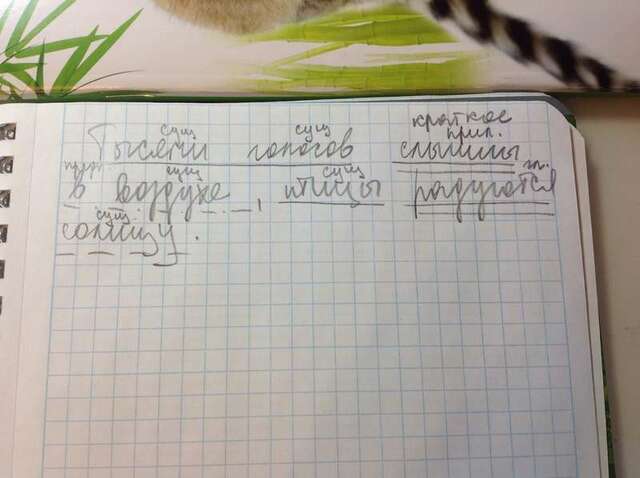 краткое
сущ сущ прил.
Тысячи голосов слышны
предл. сущ сущ гл.
в воздухе, птицы радуются
сущ.
солнцу.